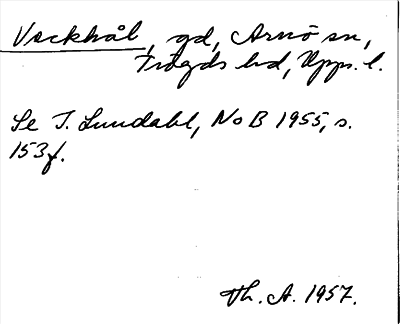 Vackhål, gd, Arnö sn,
Trögds hd, Upps. l.
Se I. Lundahl, NoB 1955, s.
153f.
Th. A. 1957.